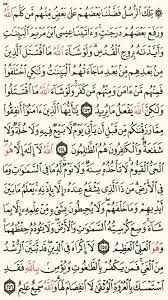 ۞ تِلْكَ الرُّسُلُ فَضَّلْنَا بَعْضَهُمْ عَلَىٰ بَعْضٍ مِنْهُمْ مَنْ كَلَّمَ اللَّهُ
وَرَفَعَ بَعْضَهُمْ دَرَجَاتٍ وَآتَيْنَا عِيسَى ابْنَ مَرْيَمَ الْبَيِّنَاتِ
وَأَيَّدْنَاهُ بِرُوحِ الْقُدُسِ وَلَوْ شَاءَ اللَّهُ مَا اقْتَتَلَ الَّذِينَ
مِنْ بَعْدِهِمْ مِنْ بَعْدِ مَا جَاءَتْهُمُ الْبَيِّنَاتُ وَلَٰكِنِ اخْتَلَفُوا
فَمِنْهُمْ مَنْ آمَنَ وَمِنْهُمْ مَنْ كَفَرَ وَلَوْ شَاءَ اللَّهُ مَا اقْتَتَلُوا
وَلَٰكِنَّ اللَّهَ يَفْعَلُ مَا يُرِيدُ ٢٥٣ يَا أَيُّهَا الَّذِينَ آمَنُوا أَنْفِقُوا
مِمَّا رَزَقْنَاكُمْ مِنْ قَبْلِ أَنْ يَأْتِيَ يَوْمٌ لَا بَيْعٌ فِيهِ وَلَا خُلَّةٌ وَلَا
شَفَاعَةٌ وَالْكَافِرُونَ هُمُ الظَّالِمُونَ ٢٥٤ اللَّهُ لَا إِلَٰهَ إِلَّا هُوَ
الْحَيُّ الْقَيُّومُ لَا تَأْخُذُهُ سِنَةٌ وَلَا نَوْمٌ لَهُ مَا فِي السَّمَاوَاتِ وَمَا
فِي الْأَرْضِ مَنْ ذَا الَّذِي يَشْفَعُ عِنْدَهُ إِلَّا بِإِذْنِهِ يَعْلَمُ مَا بَيْنَ
أَيْدِيهِمْ وَمَا خَلْفَهُمْ وَلَا يُحِيطُونَ بِشَيْءٍ مِنْ عِلْمِهِ إِلَّا بِمَا
شَاءَ وَسِعَ كُرْسِيُّهُ السَّمَاوَاتِ وَالْأَرْضَ وَلَا يَئُودُهُ حِفْظُهُمَا
وَهُوَ الْعَلِيُّ الْعَظِيمُ ٢٥٥ لَا إِكْرَاهَ فِي الدِّينِ قَدْ تَبَيَّنَ الرُّشْدُ
مِنَ الْغَيِّ فَمَنْ يَكْفُرْ بِالطَّاغُوتِ وَيُؤْمِنْ بِاللَّهِ فَقَدِ
اسْتَمْسَكَ بِالْعُرْوَةِ الْوُثْقَىٰ لَا انْفِصَامَ لَهَا وَاللَّهُ سَمِيعٌ عَلِيمٌ ٢٥٦